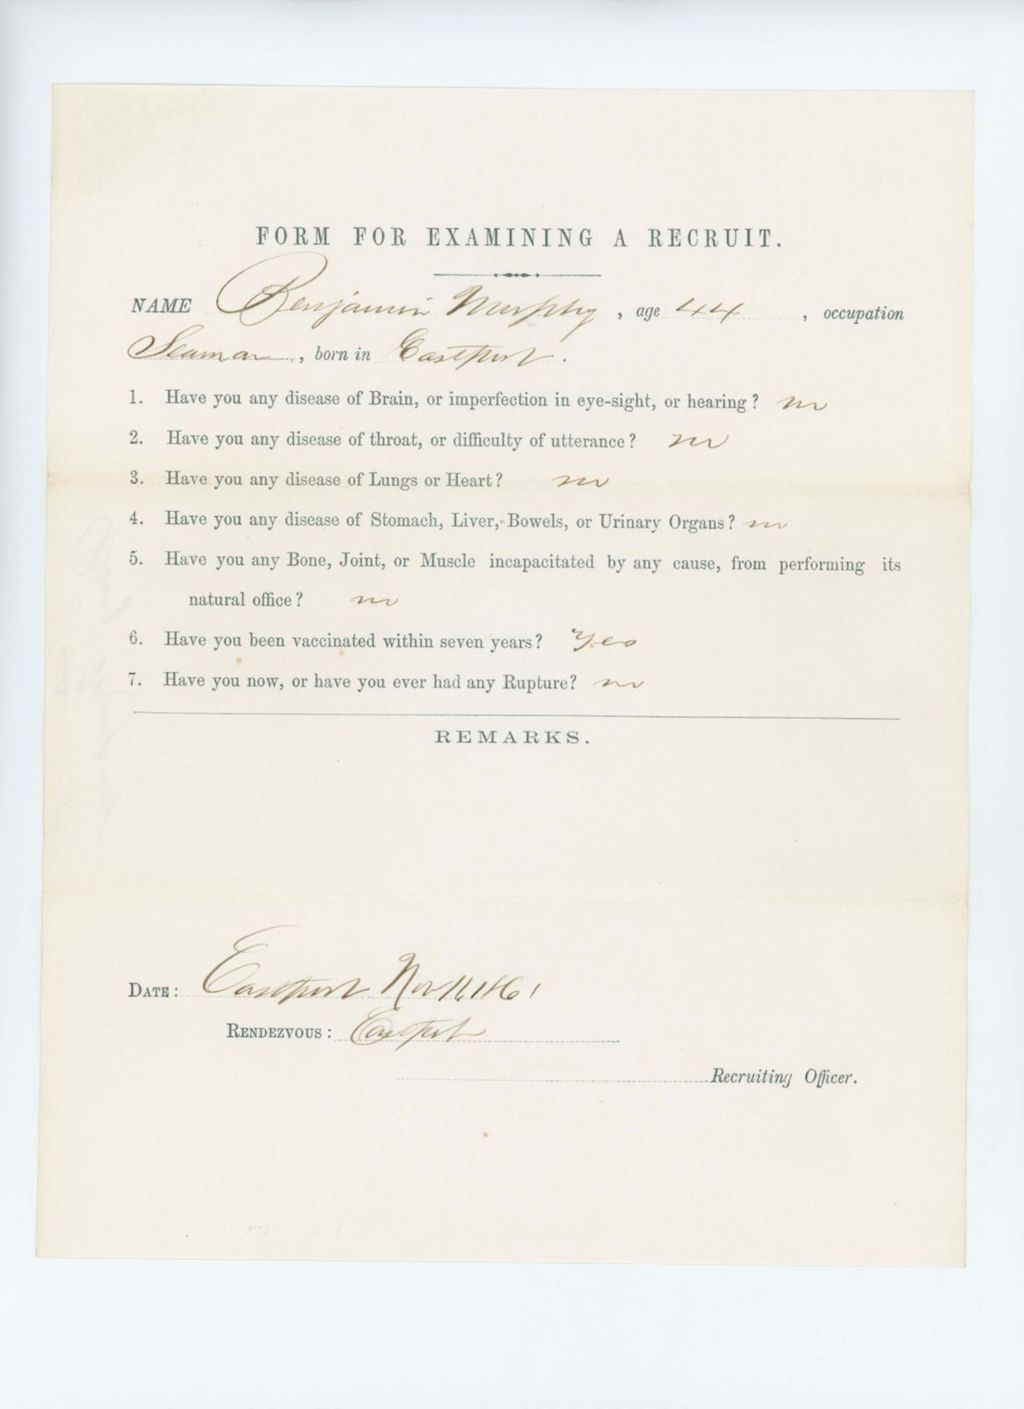 FORM FOR EXAMINING A RECRUIT.
NAME Benjamin Murphy, age 44, occupation
Seaman, born in Eastport.
1. Have you any disease of Brain, or imperfection in eye-sight, or hearing? no
2. Have you any disease of throat, or difficulty of utterance? no
3. Have you any disease of Lungs or Heart? no
4. Have you any disease of Stomach, Liver, Bowels, or Urinary Organs? no
5. Have you any Bone, Joint, or Muscle incapacitated by any cause, from performing its
natural office? no
6. Have you been vaccinated within seven years? Yes
7. Have you now, or have you ever had any Rupture? no
REMARKS.
DATE: Eastport Nov 1861
RENDEZVOUS: Eastport
Recruiting Officer.